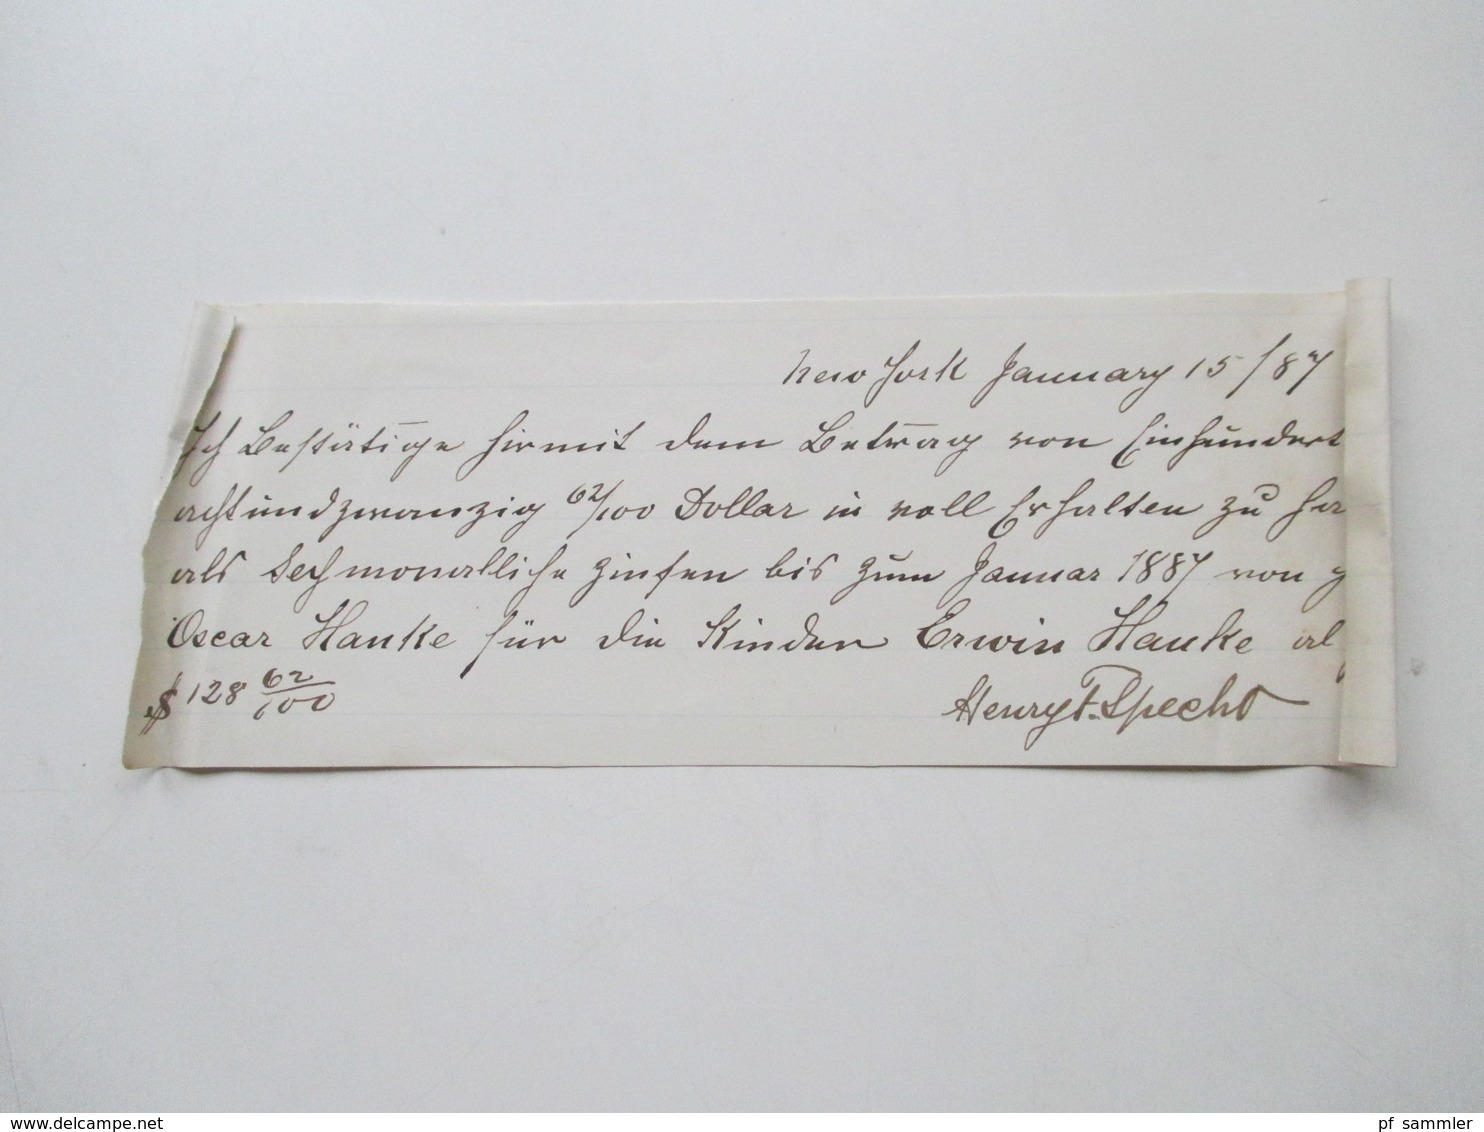 New York January 15/87
Ich Bestätige hirmit dem Betrag von Einhundert
achtundzwanzig 62/100 Dollar in voll Erhalten zu ha
als Sechmonatliche Zinsen bis zum Januar 1887 von
Oscar Hanke für die Kinder Erwin Hanke al
$ 128 62/100 Henry F. Specht
delcampe.net
pf_sammler